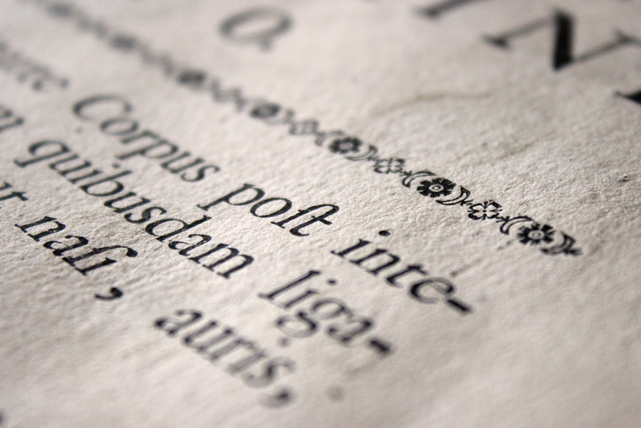 Q.
IN
Corpus poſt inte-
quibusdam liga-
naſi, auris,